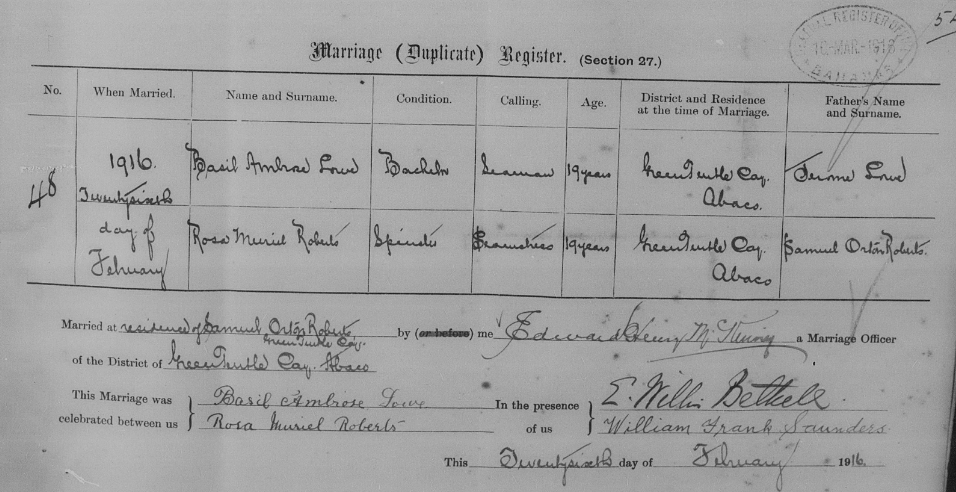 54
REGISTER
10-MAR-1916
BAHAMAS
Marriage (Duplicate) Register. (Section 27.)
No. When Married. Name and Surname. Condition. Calling. Age. District and Residence at the time of Marriage. Father's Name and Surname.
48 1916. Twentysixth day of February
Basil Ambrose Lowe Bachelor Seaman 19 years Green Turtle Cay. Abaco. Jerome Lowe
Rosa Muriel Roberts Spinster Seamstress 19 years Green Turtle Cay. Abaco Samuel Orton Roberts.
Married at residence of Samuel Orton Roberts, Green Turtle Cay. by (or before) me Edward Henry McKinney a Marriage Officer
of the District of Green Turtle Cay. Abaco
This Marriage was celebrated between us } Basil Ambrose Lowe
Rosa Muriel Roberts
In the presence of us } E. Willis Bethell.
William Frank Saunders
This Twentysixth day of February 1916.